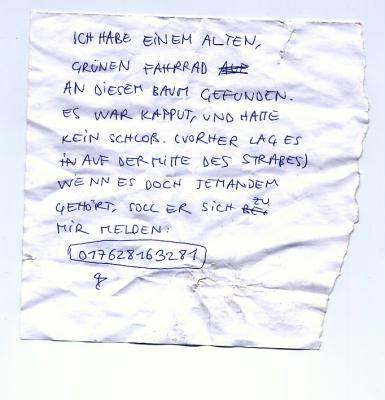 ICH HABE EINEM ALTEN,
GRÜNEN FAHRRAD AUF
AN DIESEM BAUM GEFUNDEN.
ES WAR KAPPUT, UND HATTE
KEIN SCHLOß. (VORHER LAG ES
IN AUF DER MITTE DES STRAßES)
WENN ES DOCH JEMANDEM
GEHÖRT, SOLL ER SICH BEI ZU
MIR MELDEN:
017628163281